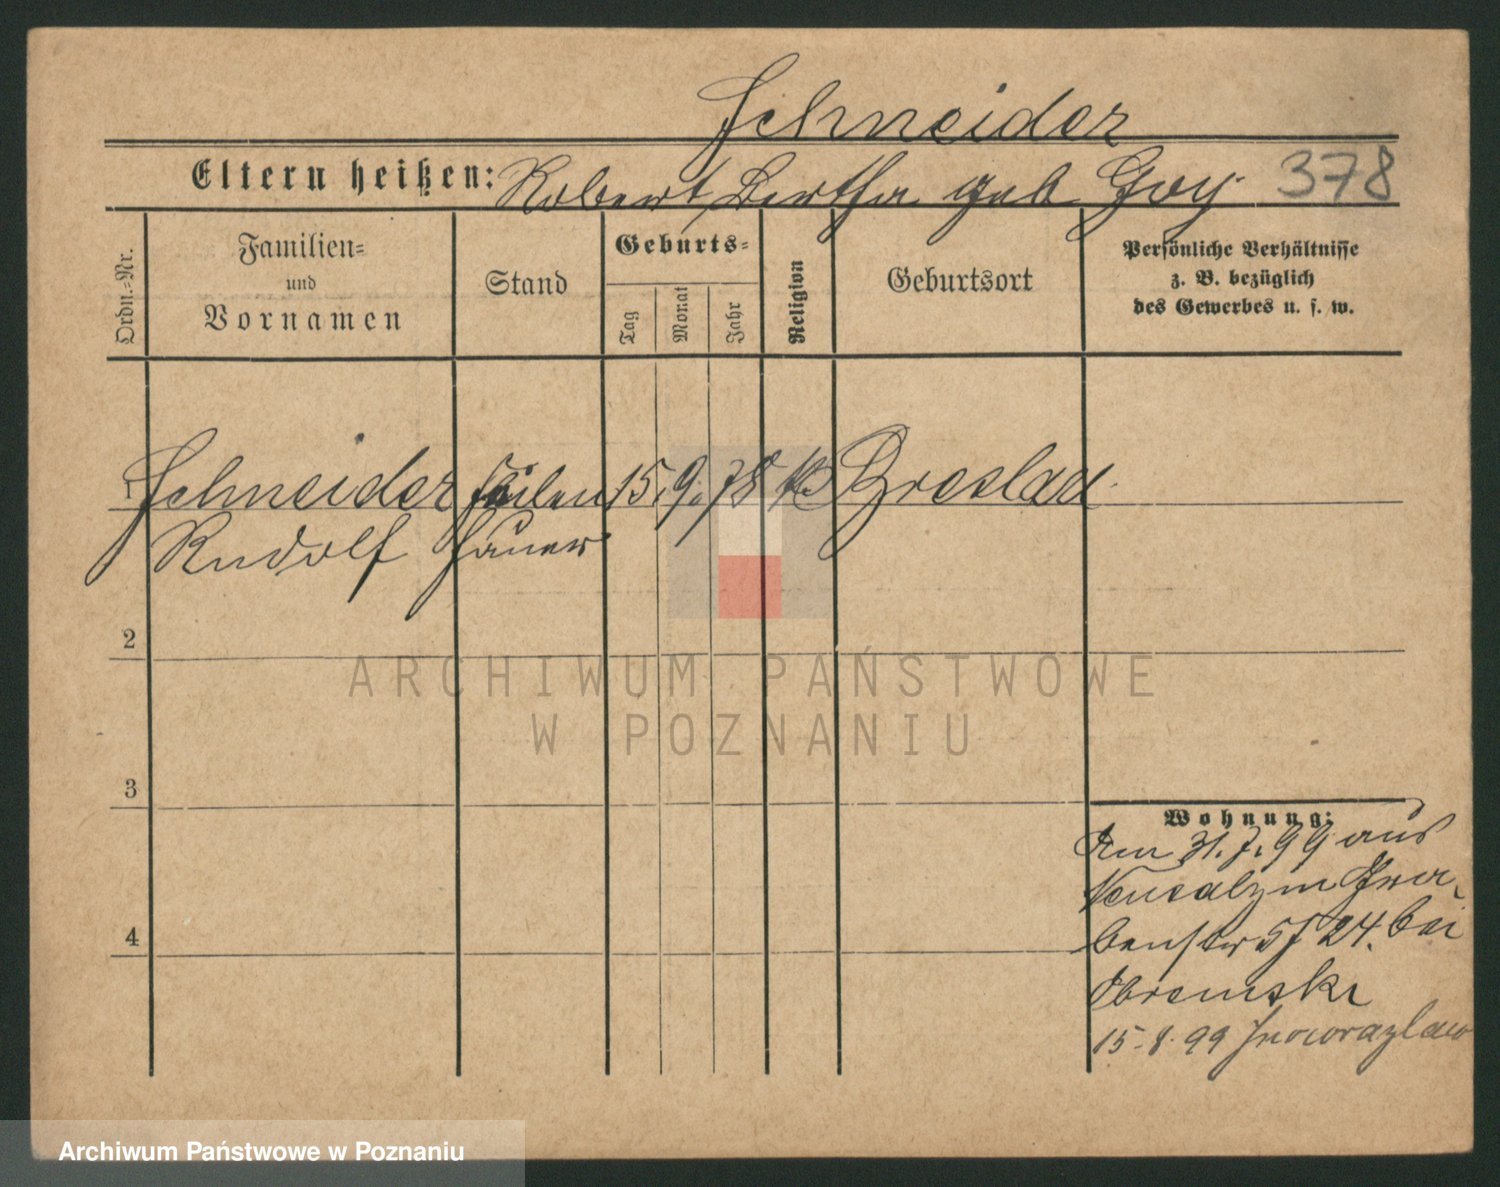 Schneider
Eltern heißen: Robert, Bertha geb Goy 378
Ordn.-Nr.
Familien-
und
Vornamen
Stand
Geburts-
Tag
Monat
Jahr
Religion
Geburtsort
Persönliche Verhältnisse
z. B. bezüglich
des Gewerbes u. s. w.
1 Schneider Feilen 15. 9. 78 Breslau
Rudolf hauer
2
3
4
Wohnung:
Am 31. 7. 99 aus
Neusalz in
24. bei
15. 8. 99 Inowrazlaw
ARCHIWUM PAŃSTWOWE
W POZNANIU
Archiwum Państwowe w Poznaniu